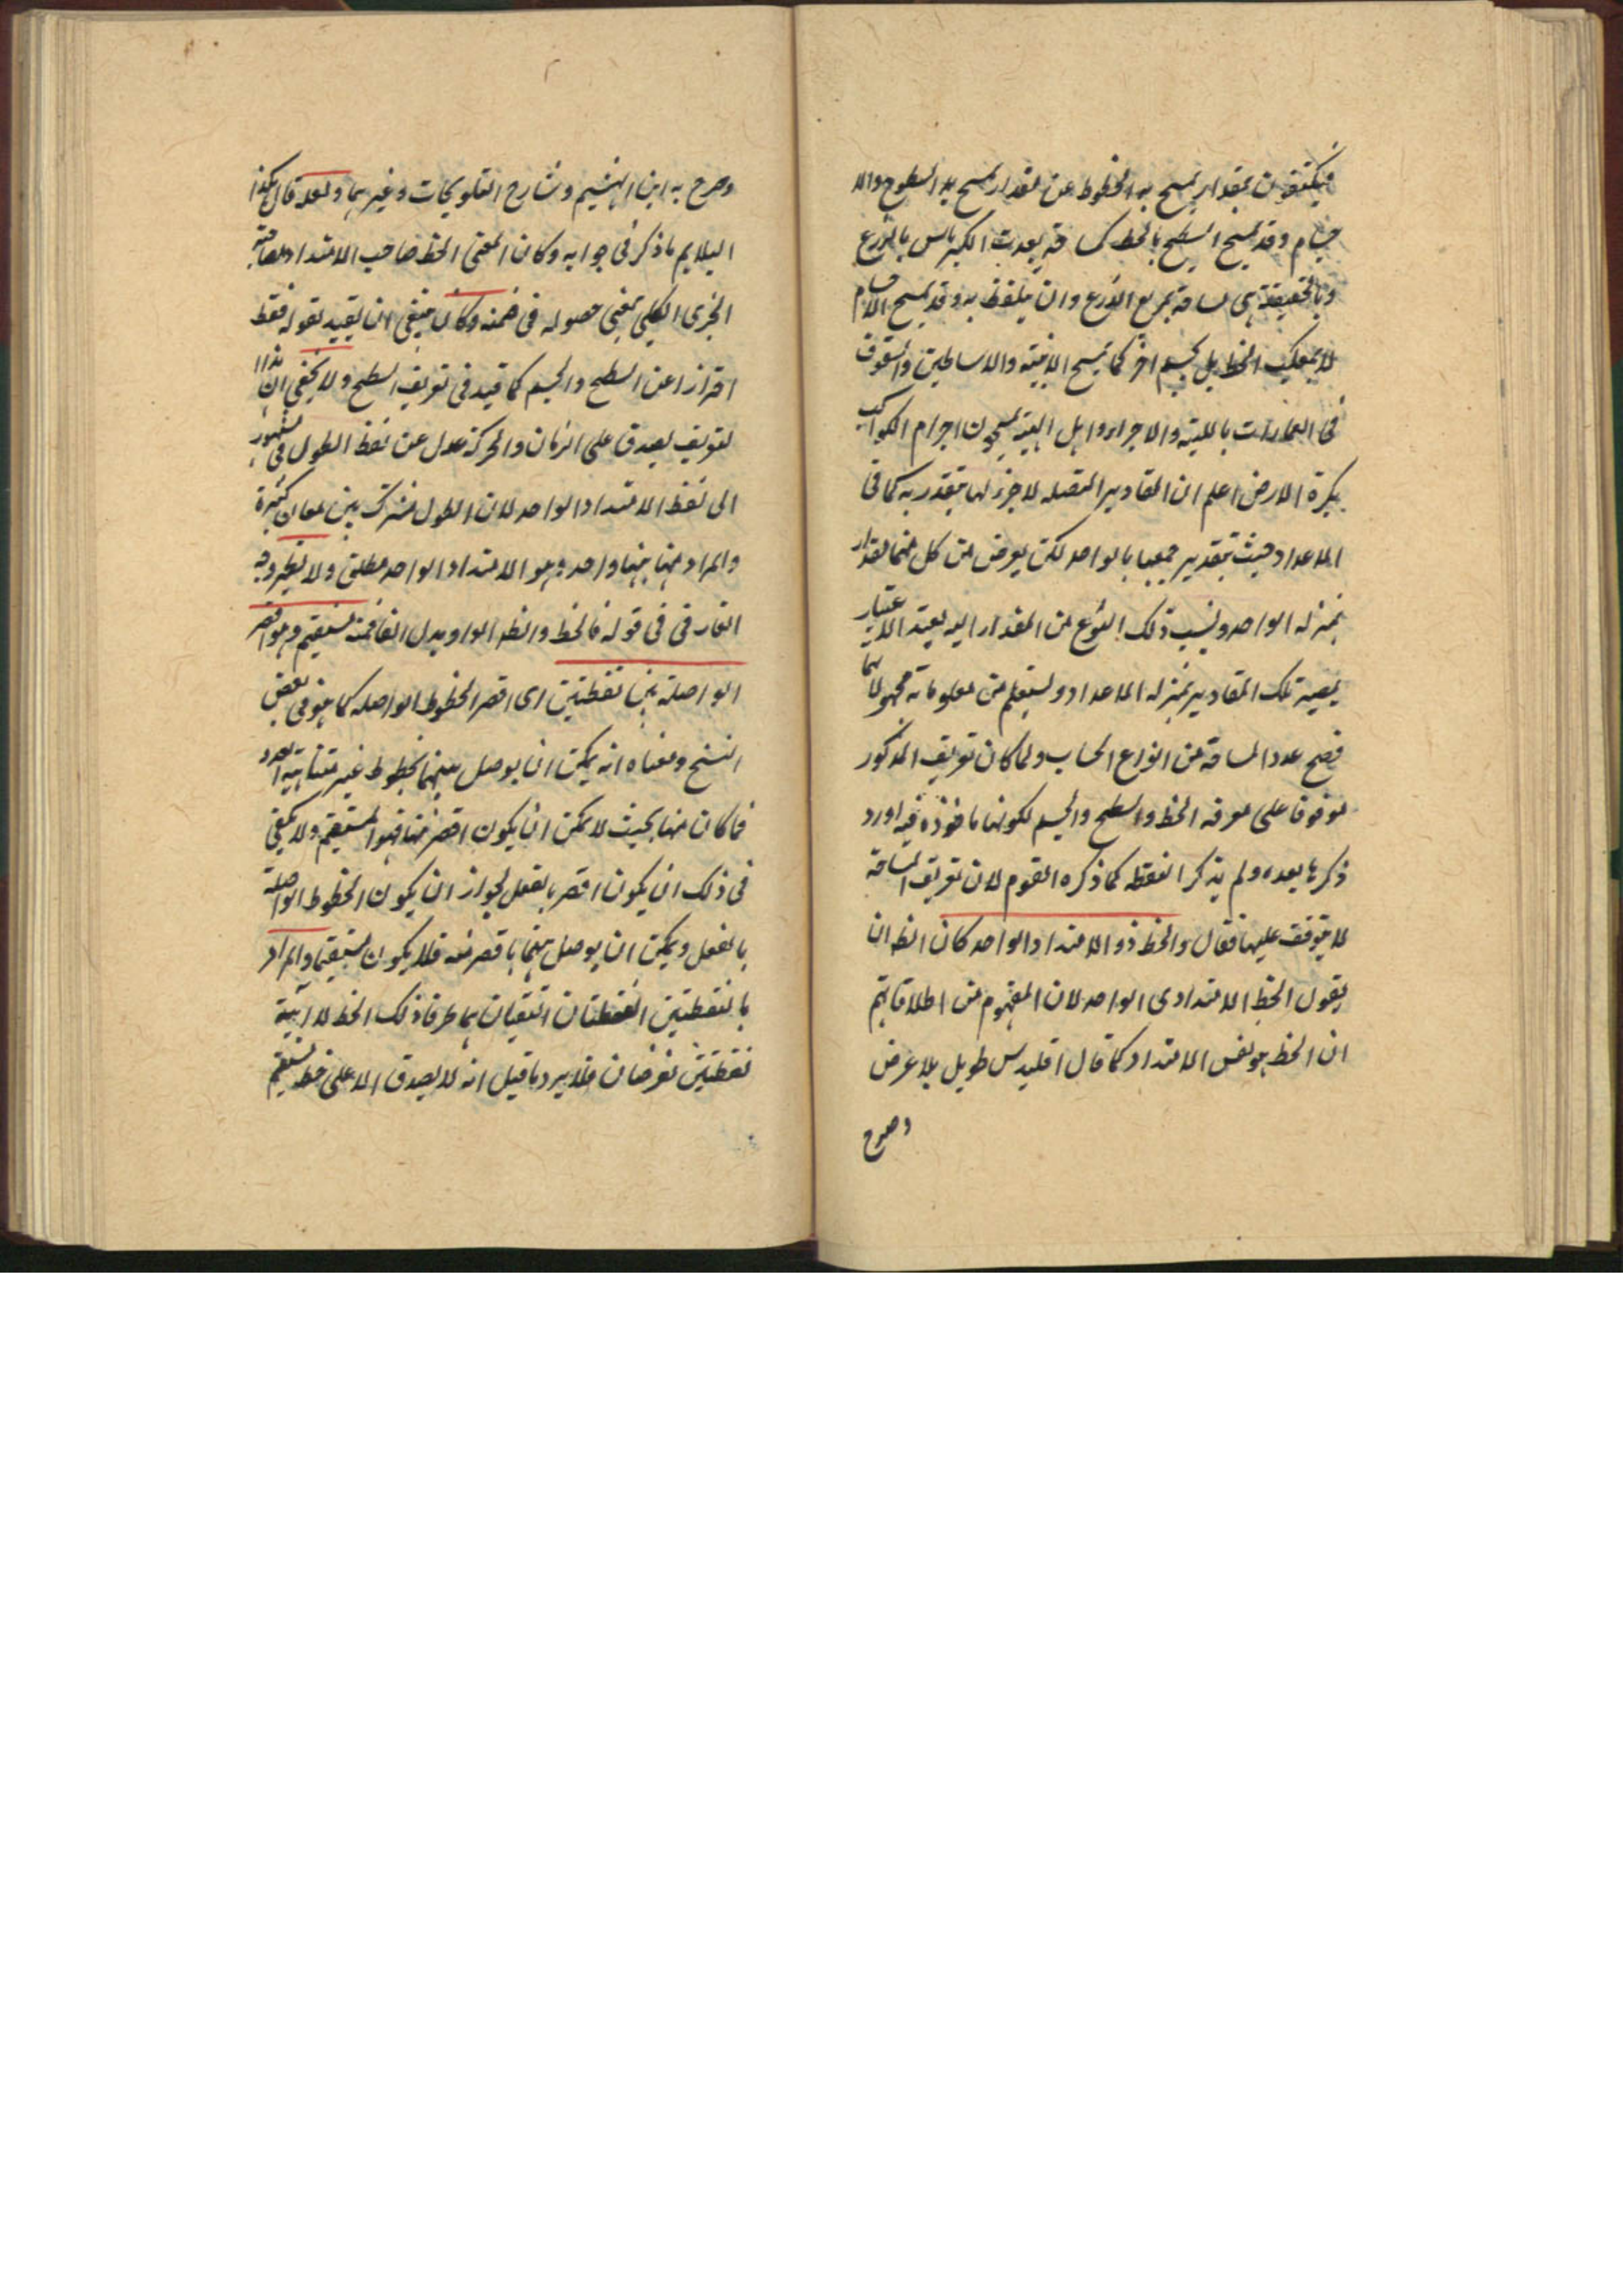 فيكتفون بمقدار يمسح به الخطوط عن مقدار يمسح به السطوح والا
جسام وقد يمسح السطح بالخط كمساحة بعدت الكرباس بالذرع
وبالحقيقة هي مساحة بمربع الذرع وان يتلفظ به وقد يمسح الاجسام
لا بمكعب الخط بل بجسم اخر كما يمسح الابنية والاساطين والسقوف
في العمارات باللبنة والاجر واهل الهيئة يمسحون اجرام الكواكب
بكرة الارض اعلم ان المقادير المتصلة لا جزء لها يتقدر به كما في
الاعداد حيث يتقدر جميعها بالواحد لكن يعرض من كل منها مقدار
بمنزلة الواحد وينسب ذلك النوع من المقدار اليه بهذا الاعتبار
يصير تلك المقادير بمنزلة الاعداد ويستعلم من معلوماته مجهولاتها
فصح عدد المساحة من انواع الحساب ولما كان تعريف المذكور
موقوفا على معرفة الخط والسطح والجسم لكونها ماخوذة فيه اورد
ذكرها بعده ولم يذكر النقطة كما ذكره القوم لان تعريف المساحة
لا يتوقف عليها فقال والخط ذو الامتداد الواحد كان الظ ان
يقول الخط الامتدادي الواحد لان المفهوم من اطلاقاتهم
ان الخط هو نفس الامتداد كما قال اقليدس طويل بلا عرض
وصرح
وصرح به ابن الهيثم وشارح التلويحات وغيرهما ولعله قال هكذا
ليلايم ما ذكر في جوابه وكان المعنى الخط صاحب الامتداد مصاحبة
الجزئى الكلي بمعنى حصوله في ضمنه وكان ينبغي ان يقيد بقوله فقط
احترازا عن السطح والجسم كما قيد في تعريف السطح ولا يخفى ان هذا
لتعريف يصدق على الزمان والحركة عدل عن لفظ الطول في المشهور
الى لفظ الامتداد الواحد لان الطول مشترك بين معان كثيرة
والمراد منها هنا واحد وهو الامتداد الواحد مطلق ولا يظهر وجه
الفارق في قوله فالخط والظ الواو بدل الفا فمنه مستقيم وهو اقصر
الواصلة بين نقطتين اى اقصر الخطوط الواصلة كما هو في بعض
النسخ ومعناه انه يمكن ان يوصل بينهما بخطوط غير متناهية العدد
فما كان منها بحيث لا يمكن ان يكون اقصر منها فهو المستقيم ولا يكفي
في ذلك ان يكون اقصر بالفعل لجواز ان يكون الخطوط الواصلة
بالفعل ويمكن ان يوصل بينهما باقصر منه فلا يكون مستقيما والمراد
بالنقطتين النقطتان اللتان هما طرفا ذلك الخط لا اية
نقطتين تفرضان فلا يرد ما قيل انه لا يصدق الا على خط مستقيم